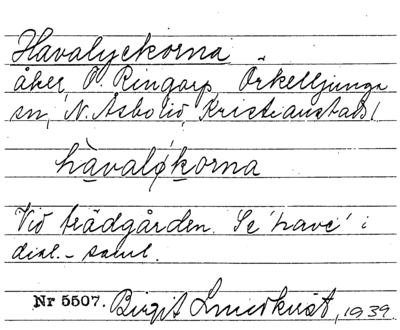 Havalyckorna
åker, Ö. Ringarp, Örkelljunga
sn, N. Åsbo hd, Kristianstads l
hàvalø̨korna
Vid trädgården. Se 'have' i
dial.-saml.
Nr 5507. Birgit Lindkvist, 1939.